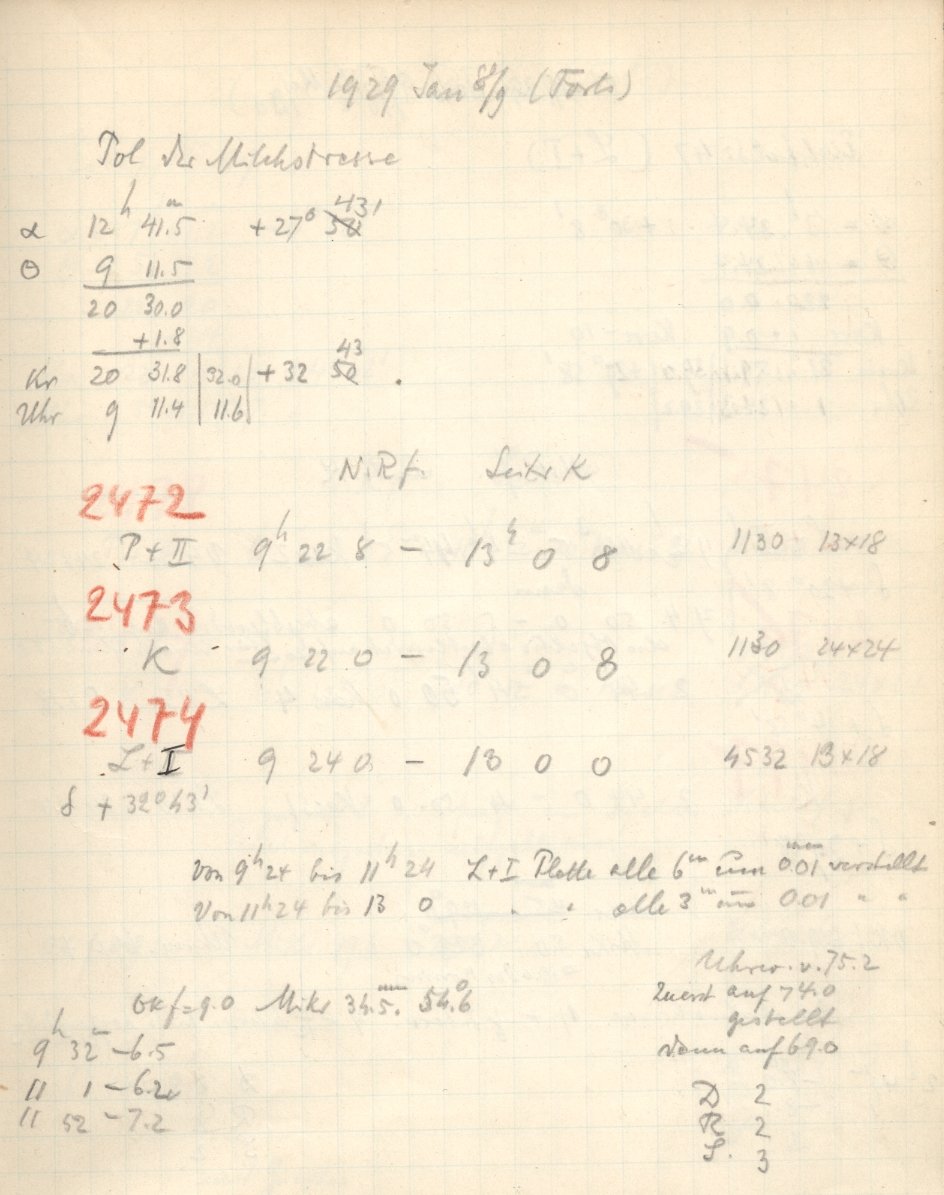 1929 Jan 8/9 (Forts)
Pol der Milchstrasse
α 12h 41.5m +27° 43' 58
θ 9 11.5
20 30.0
+1.8
Kr 20 31.8 | 32.0 | +32 43 50
Uhr 9 11.4 | 11.6
N. Rf. Leitr. K
2472
P+II 9h 22 8 – 13h 0 8 1130 13×18
2473
K 9 22 0 – 13 0 8 1130 24×24
2474
L+I 9 24 0 – 13 0 0 4532 13×18
δ +32° 43'
Von 9h 24 bis 11h 24 L+I Platte alle 6m um 0.01mm verstellt
Von 11h 24 bis 13 0 " " alle 3m um 0.01 " "
Okf=9.0 Mikr 34.5mm 54.6°
Uhrw. v. 75.2
Zuerst auf 74.0
gestellt
dann auf 69.0
9h 32m –6.5
11 1 –6.2
11 52 –7.2
D 2
R 2
S. 3